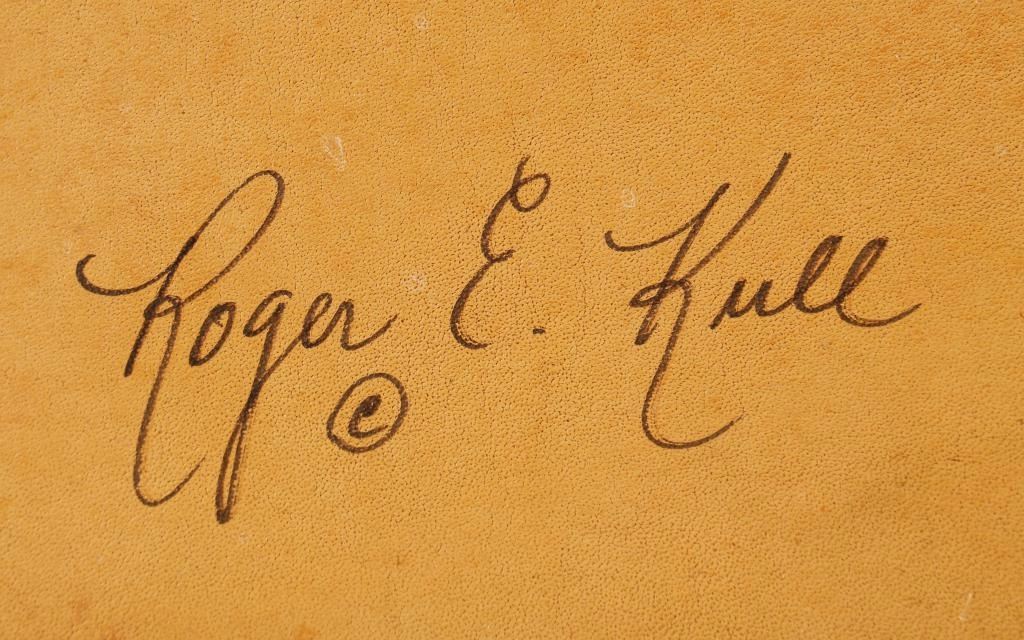 Roger E. Kull
©